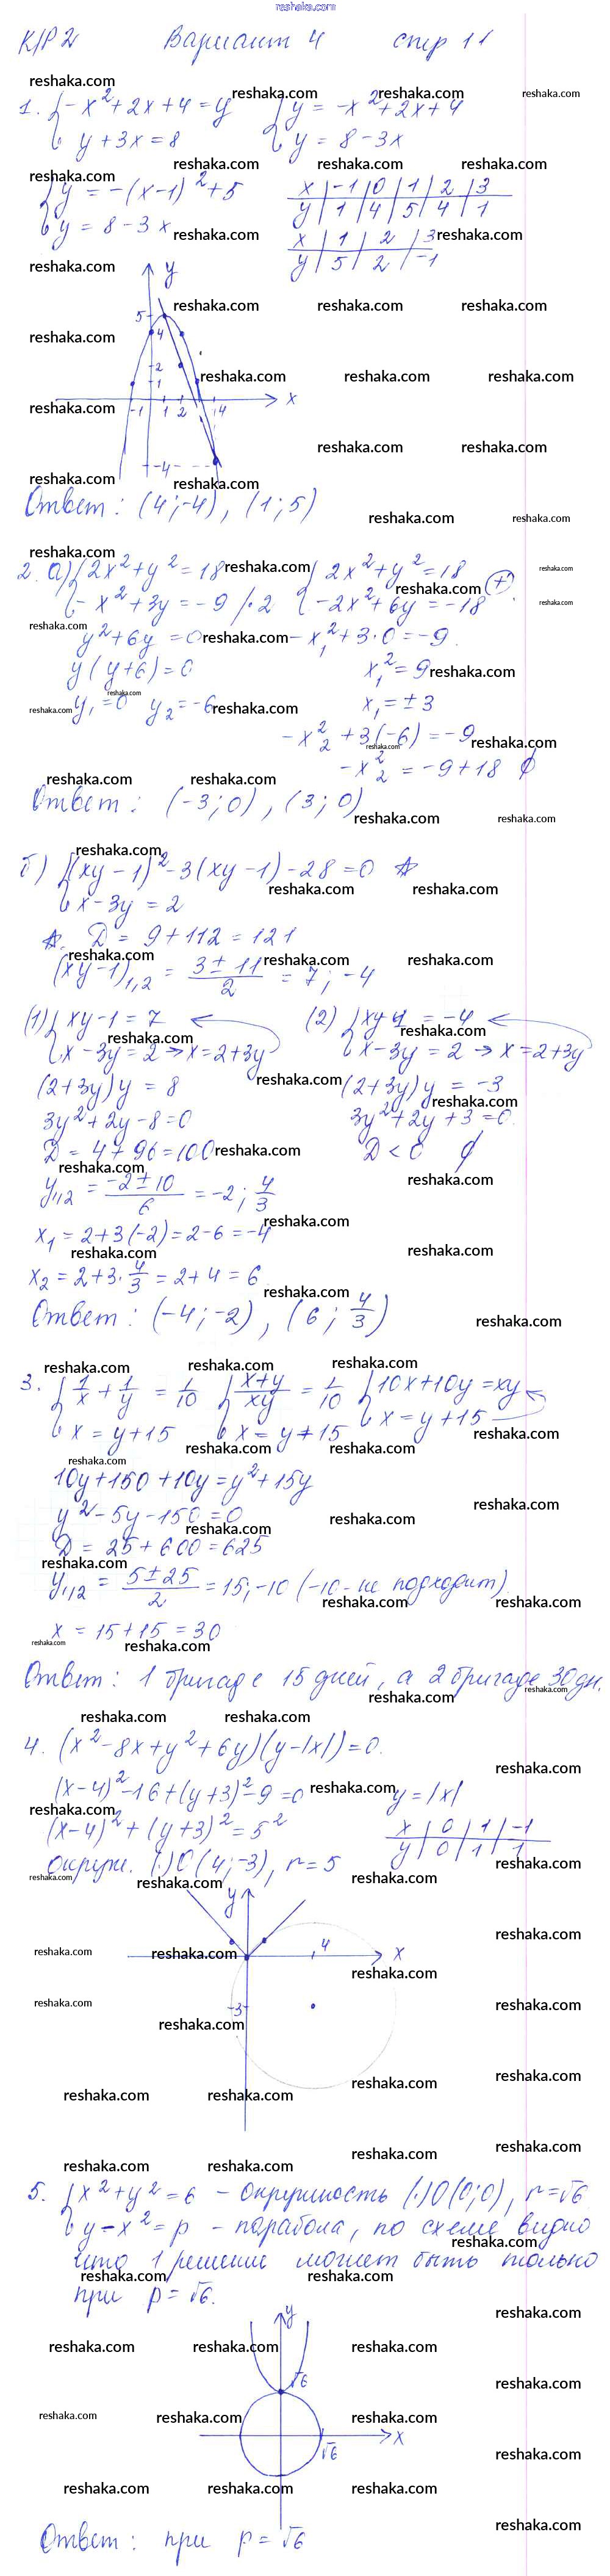 reshaka.com
К/Р 2 Вариант 4 стр 11
1. { -x² + 2x + 4 = y { y = -x² + 2x + 4
y + 3x = 8 y = 8 - 3x
{ y = -(x-1)² + 5 x | -1 | 0 | 1 | 2 | 3
y = 8 - 3x y | 1 | 4 | 5 | 4 | 1
x | 1 | 2 | 3
y | 5 | 2 | -1
y
5
4
2
1
-1 1 2 4 x
-4
Ответ: (4; -4), (1; 5)
2. а) { 2x² + y² = 18 { 2x² + y² = 18
-x² + 3y = -9 /·2 -2x² + 6y = -18 (+)
y² + 6y = 0 -x₁² + 3·0 = -9
y(y+6) = 0 x₁² = 9
y₁ = 0 y₂ = -6 x₁ = ±3
-x₂² + 3(-6) = -9
-x₂² = -9 + 18 ∅
Ответ: (-3; 0), (3; 0)
б) { (xy-1)² - 3(xy-1) - 28 = 0 ☆
x - 3y = 2
☆. D = 9 + 112 = 121
(xy-1)₁,₂ = (3 ± 11)/2 = 7; -4
(1) { xy - 1 = 7 (2) { xy-1 = -4
x - 3y = 2 → x = 2+3y x - 3y = 2 → x = 2+3y
(2+3y)y = 8 (2+3y)y = -3
3y² + 2y - 8 = 0 3y² + 2y + 3 = 0
D = 4 + 96 = 100 D < 0 ∅
y₁,₂ = (-2 ± 10)/6 = -2; 4/3
x₁ = 2 + 3(-2) = 2 - 6 = -4
x₂ = 2 + 3·4/3 = 2 + 4 = 6
Ответ: (-4; -2), (6; 4/3)
3. { 1/x + 1/y = 1/10 { (x+y)/xy = 1/10 { 10x + 10y = xy
x = y + 15 x = y + 15 x = y + 15
10y + 150 + 10y = y² + 15y
y² - 5y - 150 = 0
D = 25 + 600 = 625
y₁,₂ = (5 ± 25)/2 = 15; -10 (-10 - не подходит)
x = 15 + 15 = 30
Ответ: 1 бригаде 15 дней, а 2 бригаде 30 дн.
4. (x² - 8x + y² + 6y)(y - |x|) = 0.
(x-4)² - 16 + (y+3)² - 9 = 0 y = |x|
(x-4)² + (y+3)² = 5² x | 0 | 1 | -1
окруж. (·) O (4; -3), r = 5 y | 0 | 1 | 1
y
4 x
-3
5. { x² + y² = 6 - окружность (·) O (0; 0), r = √6
y - x² = p - парабола, по схеме видно
что 1 решение может быть только
при p = √6.
y
√6
√6 x
Ответ: при p = √6